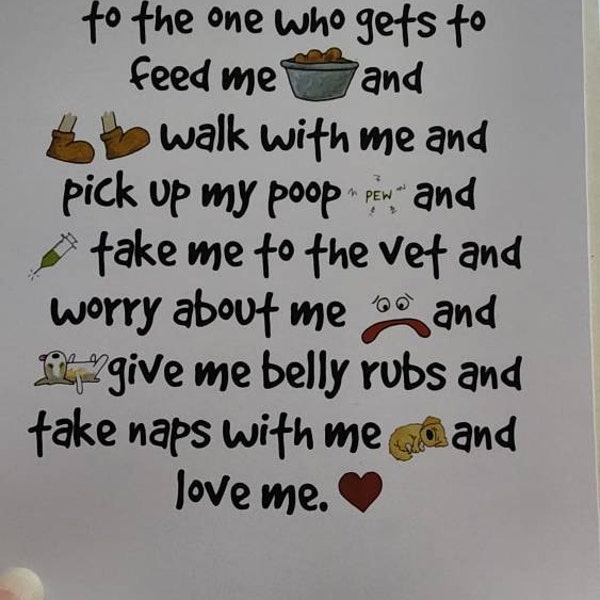 to the one who gets to
feed me and
walk with me and
pick up my poop PEW and
take me to the vet and
worry about me and
give me belly rubs and
take naps with me and
love me.